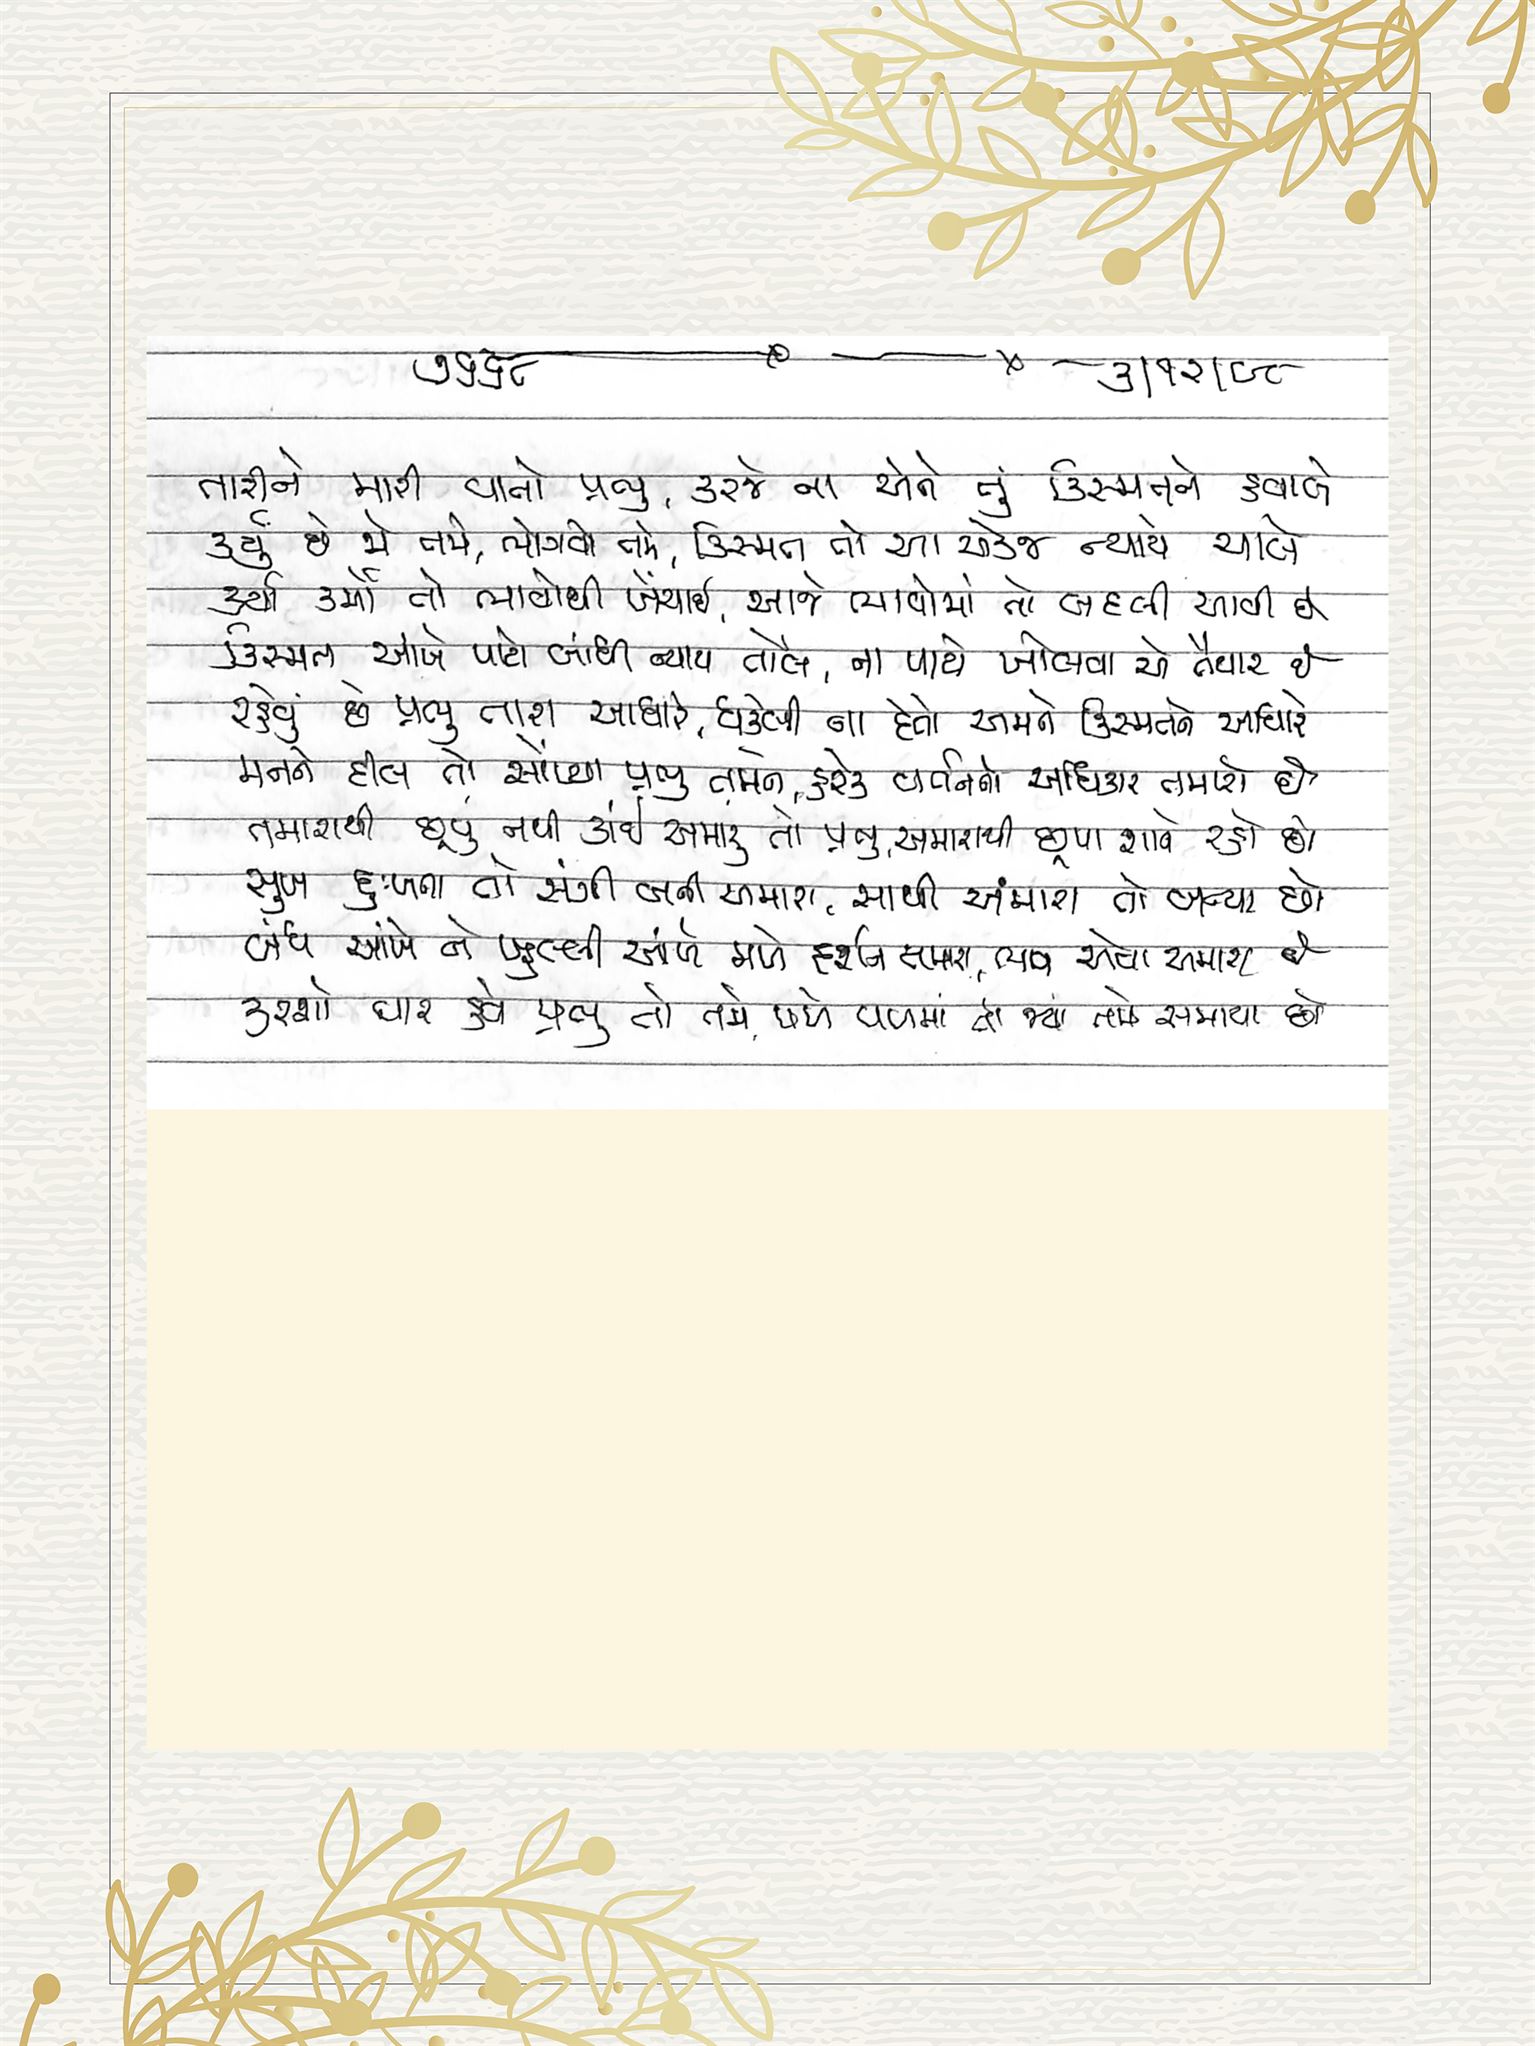 ૭૬૬૮ ૩/૧૨/૯૮
તારીને મારી વાતો પ્રભુ, કરજે ના એને તું કિસ્મતને હવાલે
કર્યું છે જે તમે, ભોગવો તમે, કિસ્મત તો આ એકજ ન્યાયે ચાલે
કર્યા કર્મો તો ભાવોથી ખેંચાઈ, આજે ભાવોમાં તો બદલી આવી છે
કિસ્મત આંખે પાટો બાંધી ન્યાય તોલે, ના પાટો ખોલવા એ તૈયાર છે
રહેવું છે પ્રભુ તારા આધારે, ધકેલી ના દેતો અમને કિસ્મતને આધારે
મનને દીલ તો સોંપ્યા પ્રભુ તમને, હરેક વર્તનનો અધિકાર તમારો છે
તમારાથી છૂપું નથી કાંઈ અમારું તો પ્રભુ, અમારાથી છૂપા શાને રહો છો
સુખ દુઃખના તો સંગી બની અમારા, સાથી અમારા તો બન્યા છો
બંધ આંખે ને ખુલ્લી આંખે મળે દર્શન તમારા, ભાવ એવા અમારા છે
કરશો વાર હવે પ્રભુ તો તમે, પળે પળમાં તો જ્યાં તમે સમાયા છો